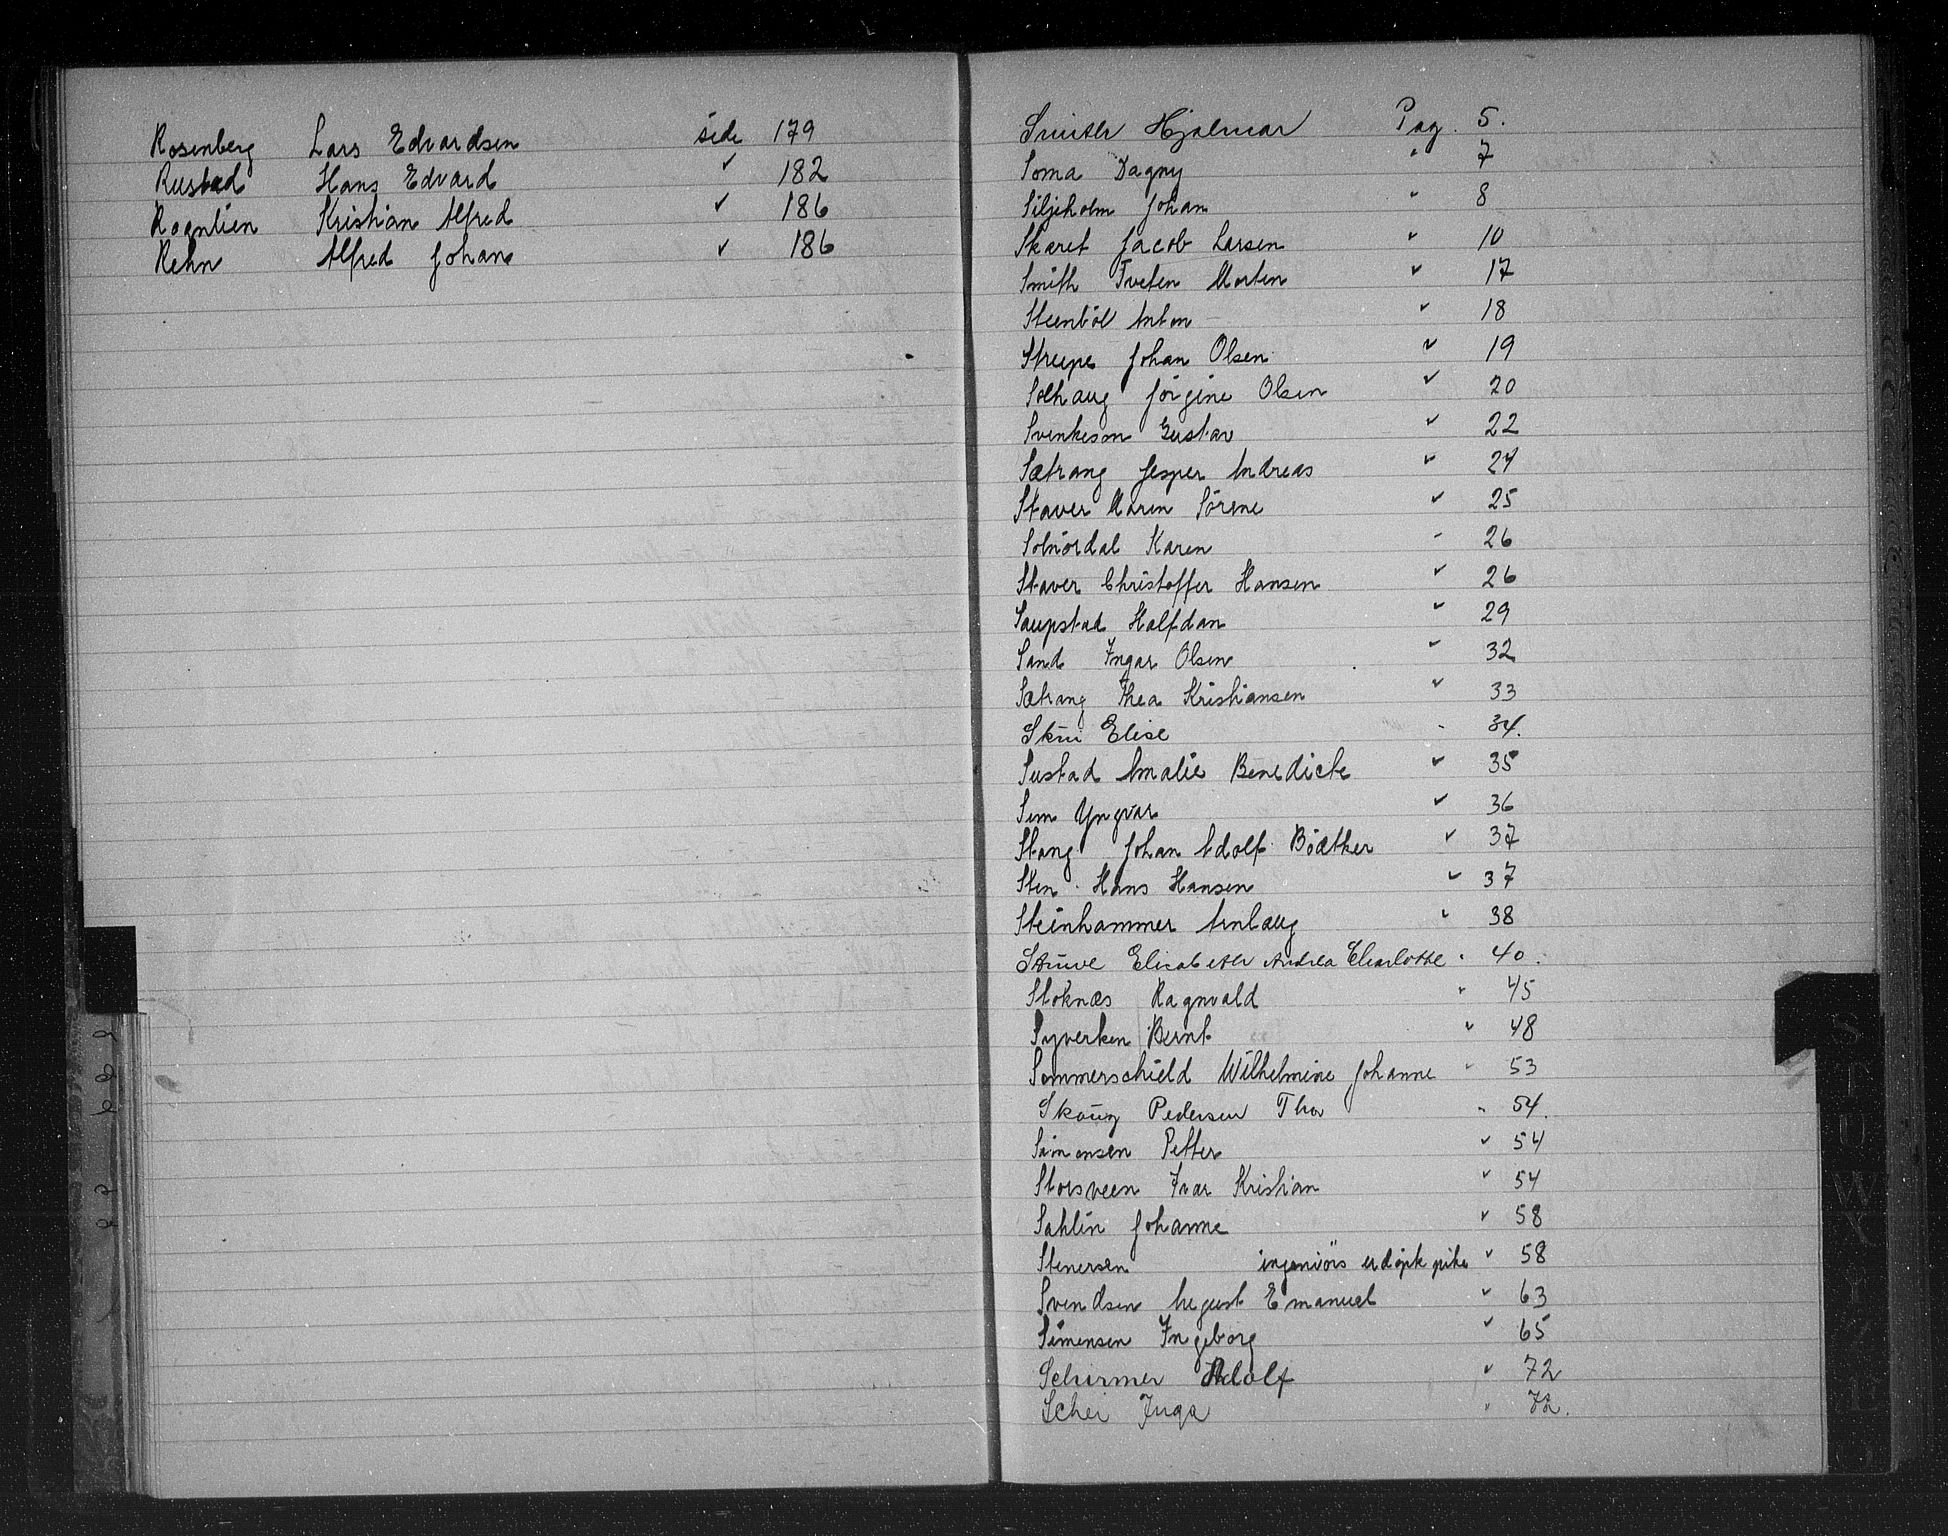 Rosenberg Lars Edvardsen side 179
Rustad Hans Edvard " 182
Rognlien Kristian Alfred " 186
Rehn Alfred Johan " 186
Smith Hjalmar Pag. 5.
Soma Dagny " 7
Siljeholm Johan " 8
Skaret Jacob Larsen " 10
Smith Tveten Morten " 17
Steenböl Anton " 18
Streepe Johan Olsen " 19
Solhaug Jörgine Olsen " 20
Svenkeson Gustav " 22
Sætrang Jesper Andreas " 24
Staver Maren Sörene " 25
Solnördal Karen " 26
Staver Christoffer Hansen " 26
Saupstad Halfdan " 29
Sand Ingar Olsen " 32
Sætrang Thea Kristiansen " 33
Skui Elise " 34.
Sustad Amalie Benedicte " 35
Sem Yngvar " 36
Stang Johan Adolf Böætker " 37
Sten Hans Hansen " 37
Steinhammer Anlaug " 38
Stuwe Elisabeth Andrea Charlotte " 40.
Stoknæs Ragnvald " 45
Syverken Bernt " 48
Sommerschield Wilhelmine Johanne " 53
Skaug Pedersen Thor " 54.
Simensen Petter " 54
Storsveen Ivar Kristian " 54
Sahlin Johanne " 58
Stenersen ingeniörs udöpt pike " 58
Svendsen August Emanuel " 63
Simensen Ingeborg " 65
Schirmer Adolf " 72
Schei Inga " 72.
S
T
U
W
X
Y
Z